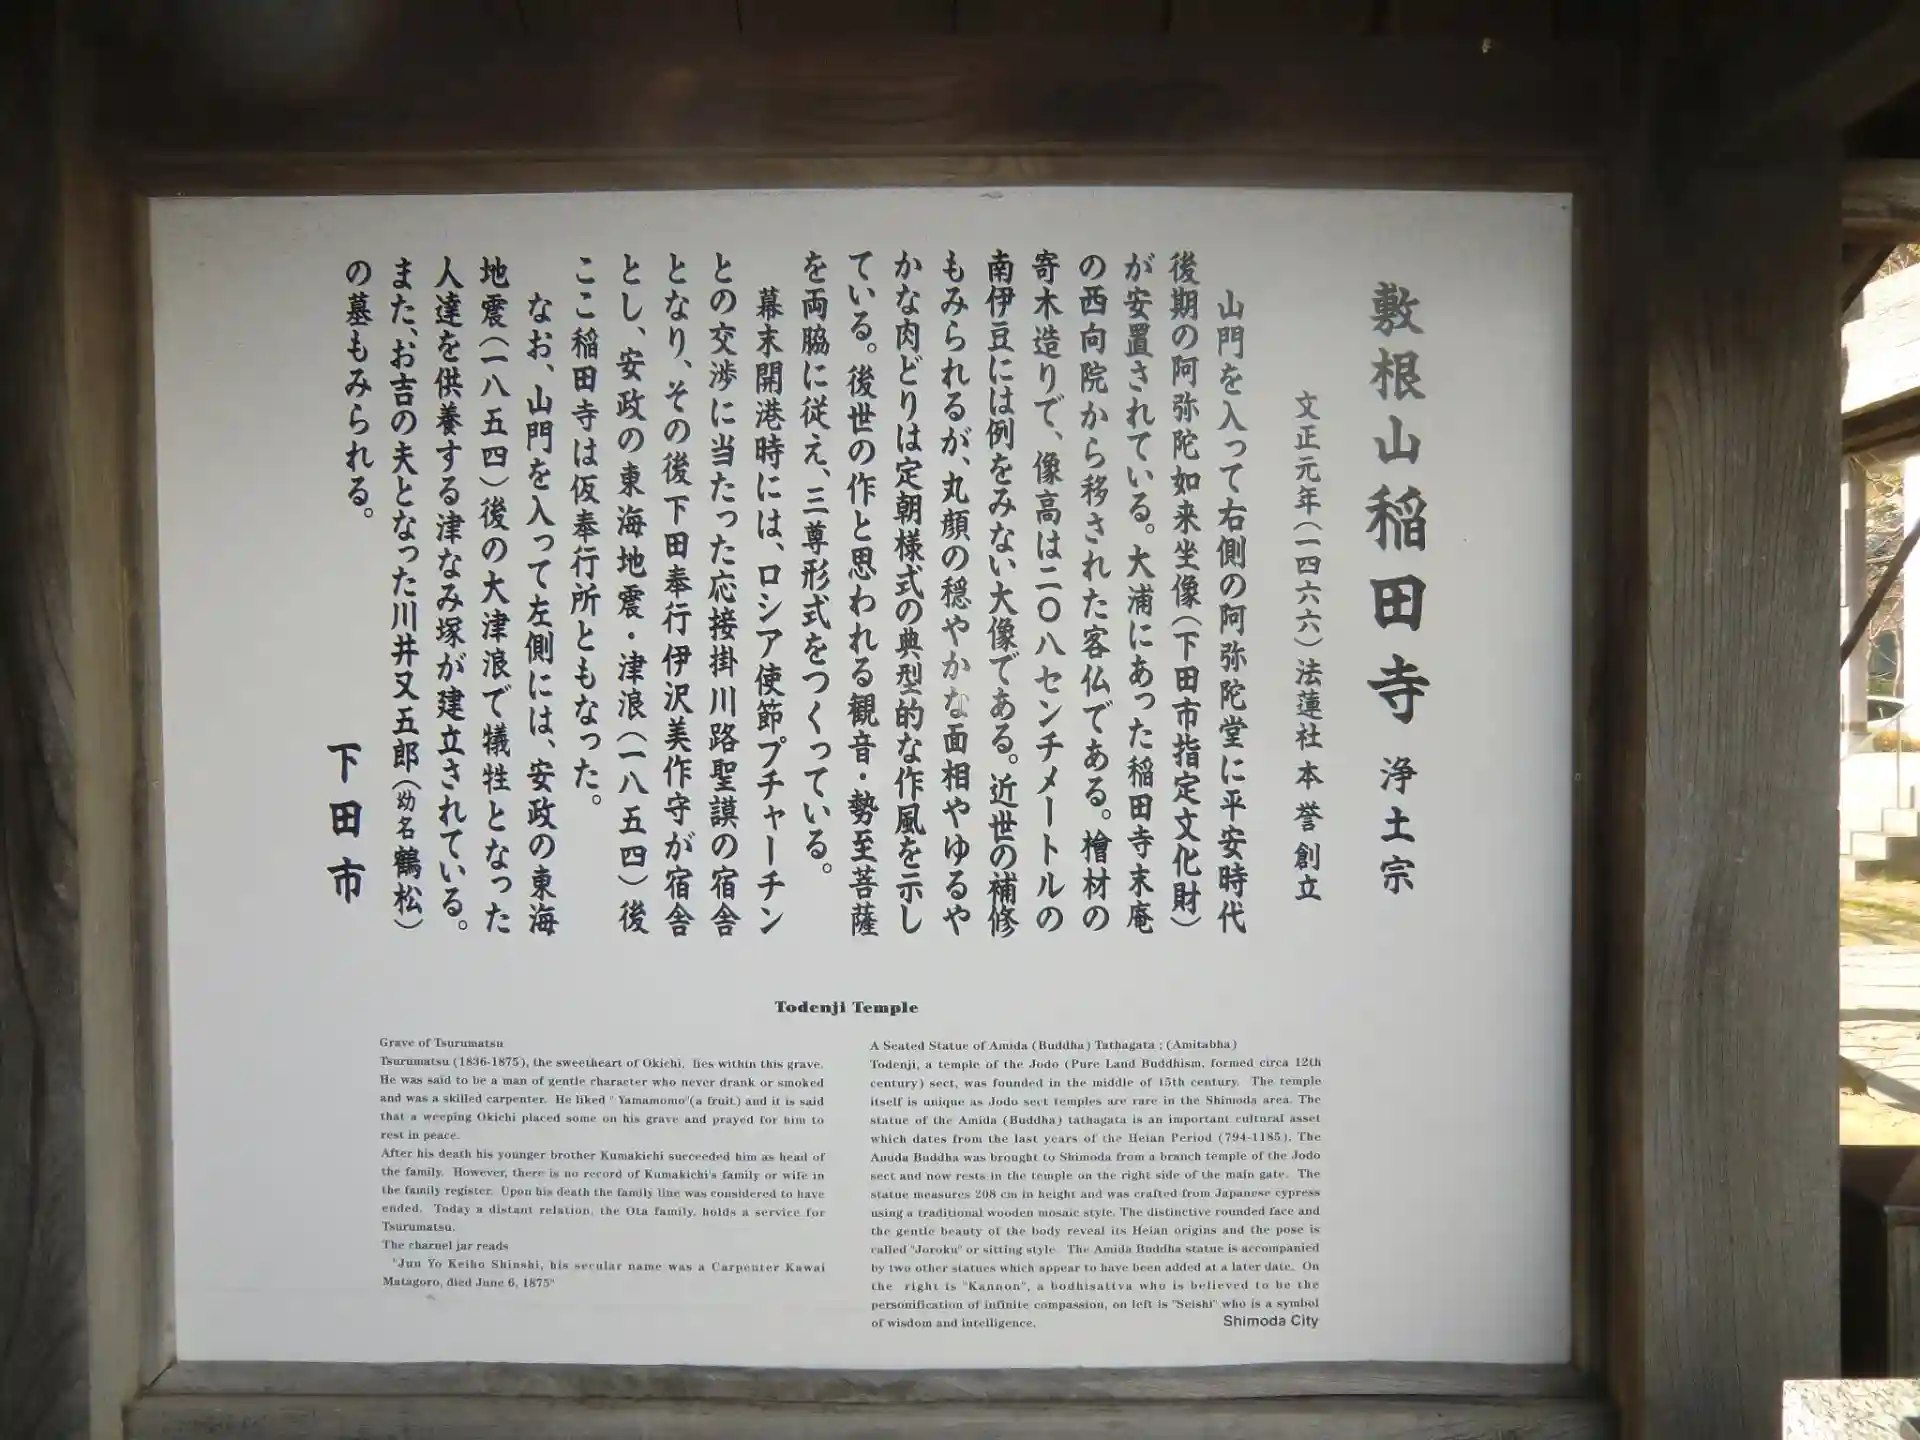 敷根山稲田寺 浄土宗
文正元年(一四六六)法蓮社本誉創立
山門を入って右側の阿弥陀堂に平安時代
後期の阿弥陀如来坐像(下田市指定文化財)
が安置されている。大浦にあった稲田寺末庵
の西向院から移された客仏である。檜材の
寄木造りで、像高は二〇八センチメートルの
南伊豆には例をみない大像である。近世の補修
もみられるが、丸顔の穏やかな面相やゆるや
かな肉どりは定朝様式の典型的な作風を示し
ている。後世の作と思われる観音・勢至菩薩
を両脇に従え、三尊形式をつくっている。
幕末開港時には、ロシア使節プチャーチン
との交渉に当たった応接掛川路聖謨の宿舎
となり、その後下田奉行伊沢美作守が宿舎
とし、安政の東海地震・津浪(一八五四)後
ここ稲田寺は仮奉行所ともなった。
なお、山門を入って左側には、安政の東海
地震(一八五四)後の大津浪で犠牲となった
人達を供養する津なみ塚が建立されている。
また、お吉の夫となった川井又五郎(幼名鶴松)
の墓もみられる。
下田市
Todenji Temple
Grave of Tsurumatsu
Tsurumatsu (1836-1875), the sweetheart of Okichi, lies within this grave.
He was said to be a man of gentle character who never drank or smoked
and was a skilled carpenter. He liked "Yamamomo"(a fruit.) and it is said
that a weeping Okichi placed some on his grave and prayed for him to
rest in peace.
After his death his younger brother Kumakichi succeeded him as head of
the family. However, there is no record of Kumakichi's family or wife in
the family register. Upon his death the family line was considered to have
ended. Today a distant relation, the Ota family, holds a service for
Tsurumatsu.
The charnel jar reads
"Jun Yo Keiho Shinshi, his secular name was a Carpenter Kawai
Matagoro, died June 6, 1875"
A Seated Statue of Amida (Buddha) Tathagata ; (Amitabha)
Todenji, a temple of the Jodo (Pure Land Buddhism, formed circa 12th
century) sect, was founded in the middle of 15th century. The temple
itself is unique as Jodo sect temples are rare in the Shimoda area. The
statue of the Amida (Buddha) tathagata is an important cultural asset
which dates from the last years of the Heian Period (794-1185). The
Amida Buddha was brought to Shimoda from a branch temple of the Jodo
sect and now rests in the temple on the right side of the main gate. The
statue measures 208 cm in height and was crafted from Japanese cypress
using a traditional wooden mosaic style. The distinctive rounded face and
the gentle beauty of the body reveal its Heian origins and the pose is
called "Joroku" or sitting style. The Amida Buddha statue is accompanied
by two other statues which appear to have been added at a later date. On
the right is "Kannon", a bodhisattva who is believed to be the
personification of infinite compassion, on left is "Seishi" who is a symbol
of wisdom and intelligence.
Shimoda City